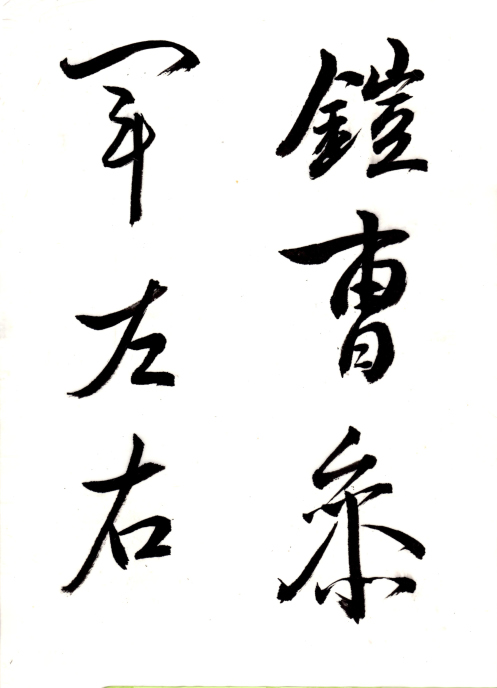 鎧曹參
軍左右